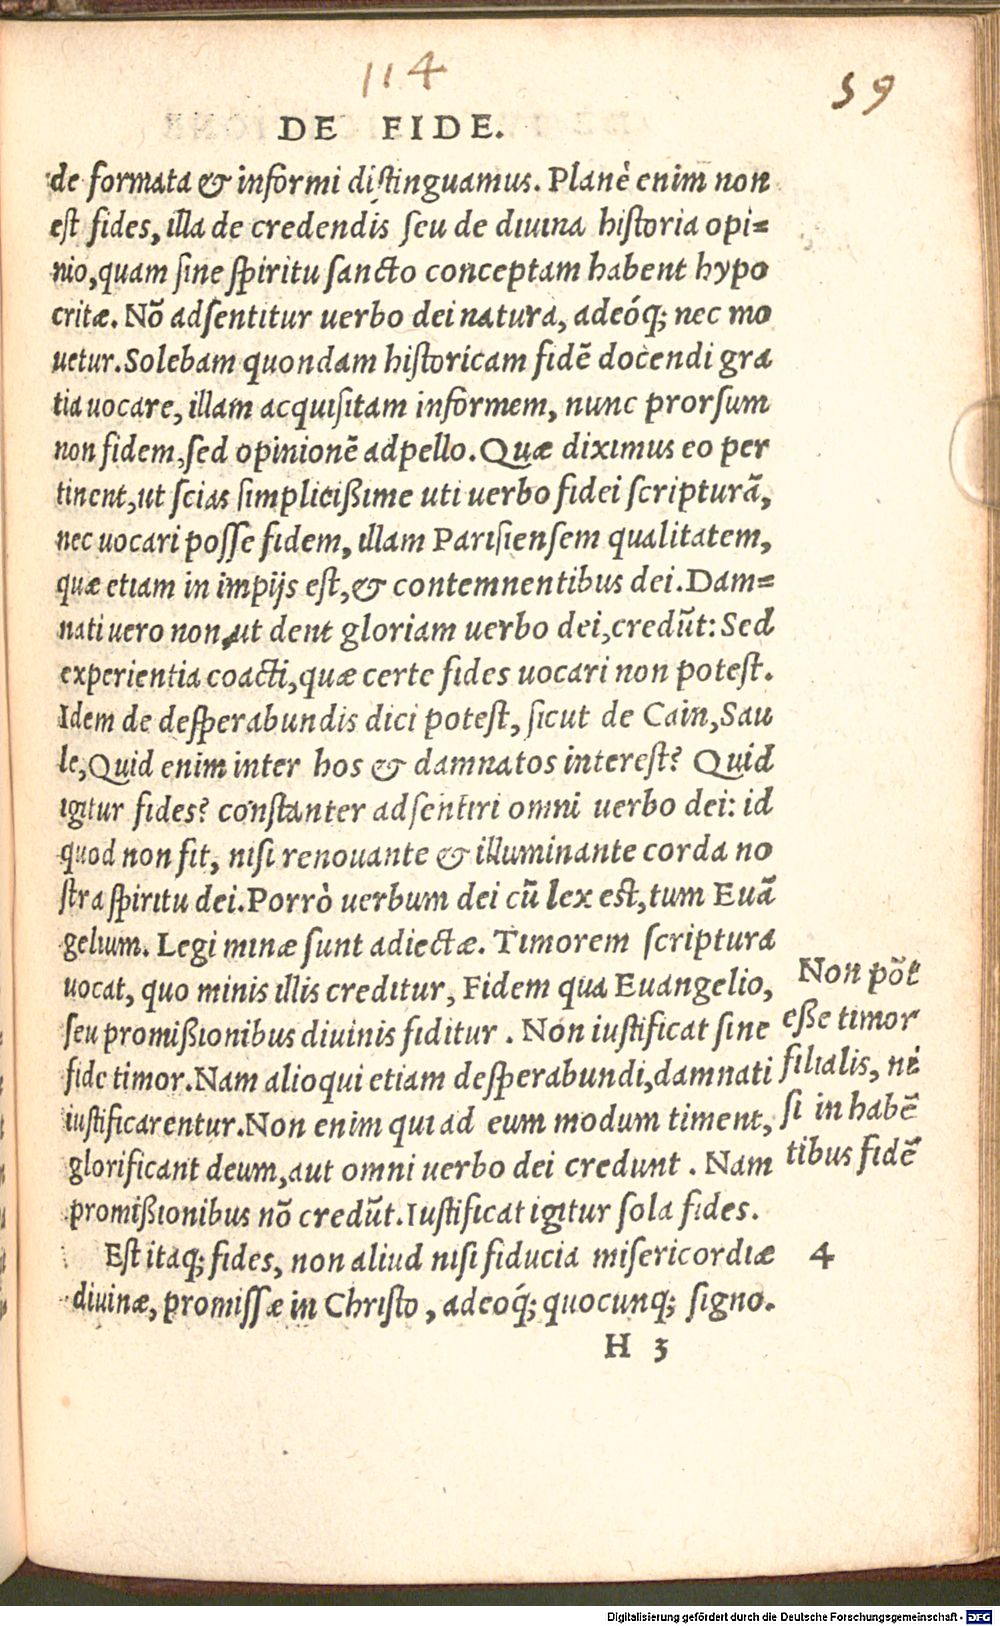 114
59
DE FIDE.
de formata & informi distinguamus. Planè enim non
est fides, illa de credendis seu de diuina historia opi=
nio, quam sine spiritu sancto conceptam habent hypo
critæ. Nõ adsentitur uerbo dei natura, adeóq; nec mo
uetur. Solebam quondam historicam fidẽ docendi gra
tia uocare, illam acquisitam informem, nunc prorsum
non fidem, sed opinionẽ adpello. Quæ diximus eo per
tinent, ut scias simplicißime uti uerbo fidei scripturã,
nec uocari posse fidem, illam Parisiensem qualitatem,
quæ etiam in impijs est, & contemnentibus dei. Dam=
nati uero non, ut dent gloriam uerbo dei, credũt: Sed
experientia coacti, quæ certe fides uocari non potest.
Idem de desperabundis dici potest, sicut de Cain, Sau
le, Quid enim inter hos & damnatos interest? Quid
igitur fides? constanter adsentiri omni uerbo dei: id
quod non fit, nisi renouante & illuminante corda no
stra spiritu dei. Porrò uerbum dei cũ lex est, tum Euã
gelium. Legi minæ sunt adiectæ. Timorem scriptura
uocat, quo minis illis creditur, Fidem qua Euangelio,
seu promißionibus diuinis fiditur. Non iustificat sine
fide timor. Nam alioqui etiam desperabundi, damnati
iustificarentur. Non enim qui ad eum modum timent,
glorificant deum, aut omni uerbo dei credunt. Nam
promißionibus nõ credũt. Iustificat igitur sola fides.
Est itaq; fides, non aliud nisi fiducia misericordiæ
diuinæ, promissæ in Christo, adeóq; quocunq; signo.
H 3
Non põt
eße timor
filialis, ni
si in habẽ
tibus fidẽ
4
Digitalisierung gefördert durch die Deutsche Forschungsgemeinschaft - DFG